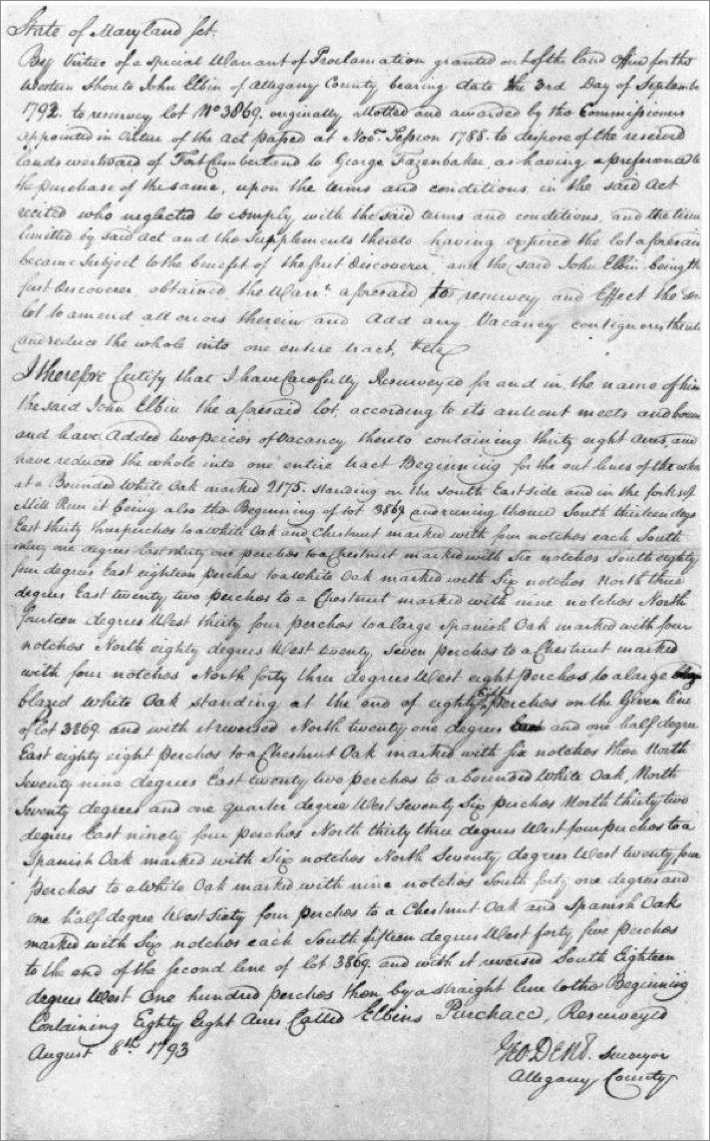 State of Maryland Sct.
By Virtue of a Special Warrant of Proclamation granted out of the land Office for the
Western Shore to John Elbin of Allegany County bearing date the 3rd Day of Septembe
1792. to resurvey lot No 3869. originally allotted and awarded by the Commissioners
appointed in virtue of the act passed at Novr. Session 1788. to dispose of the reserved
lands westward of Fort Cumberland to George Fazenbaker, as having a preference to
the purchase of the same, upon the terms and conditions, in the said Act
recited who neglected to comply, with the said terms and conditions, and the time
limitted by said Act and the Supplements thereto having expired the lot aforesaid
became Subject to the benefit of the first discoverer and the said John Elbin being the
first discoverer obtained the Warrt. aforesaid to resurvey and Effect the
lot to amend all errors therein and Add any Vacancy contiguous thereto
and reduce the whole into one entire tract, &c
I therefore Certify that I have Carefully Resurveyed for and in the name of him
the said John Elbin the aforesaid lot, according to its antient meets and boun
and have Added two peices of Vacancy thereto containing thirty eight Acres, and
have reduced the whole into one entire tract Beginning for the out lines of the whol
at a Bounded White Oak marked 2175. standing on the South East side and in the forks of
Mill Run it being also the Beginning of lot 3869 and runing thence South thirteen degs
East thirty three perches to a White Oak and Chestnut marked with four notches each South
ninty one degrees East ninty one perches to a Chestnut marked with Six notches South eighty
four degrees East eighteen perches to a White Oak marked with Six notches North three
degrees East twenty two perches to a Chestnut marked with nine notches North
fourteen degrees West thirty four perches to a large Spanish Oak marked with four
notches North eighty degrees West twenty Seven perches to a Chestnut marked
with four notches North forty three degrees West eight perches to a large
blazed White Oak standing at the end of eighty Eight perches on the Given line
of lot 3869 and with it reversed North twenty one degrees and one half degree
East eighty eight perches to a Chestnut Oak marked with six notches then North
Seventy nine degrees East twenty two perches to a bounded White Oak, North
Seventy degrees and one quarter degree West Seventy Six perches North thirty two
degrees East ninety four perches North thirty three degrees West four perches to a
Spanish Oak marked with Six notches North Seventy degrees West twenty four
perches to a White Oak marked with nine notches South forty one degrees and
one half degree West Sixty four perches to a Chestnut Oak and Spanish Oak
marked with Six notches each South fifteen degrees West forty five perches
to the end of the second line of lot 3869. and with it reversed South Eighteen
degrees West One hundred perches then by a straight line to the Beginning
Containing Eighty Eight Acres Called Elbins Purchace, Resurveyed
August 8th 1793
Geo. Dent. Surveyor
Allegany County